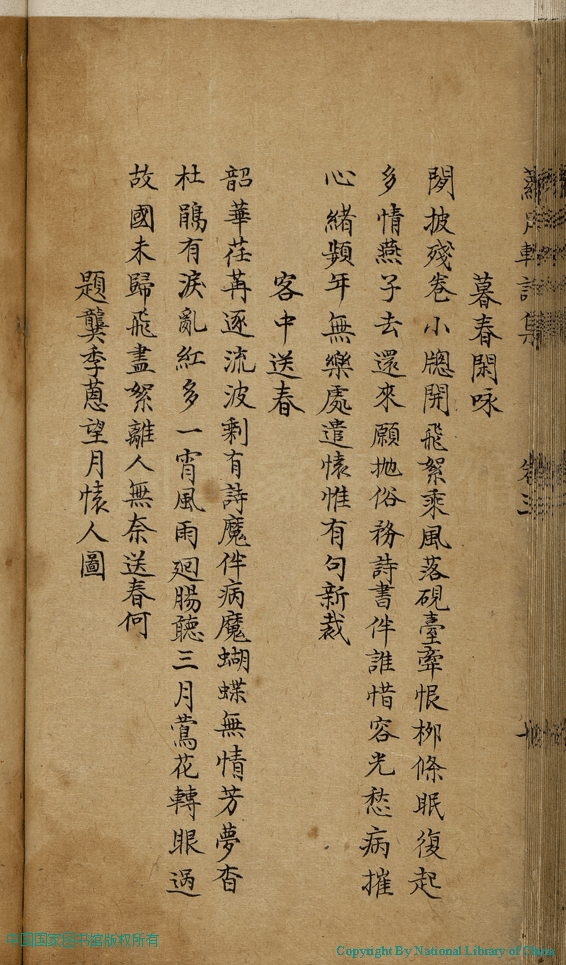 暮春閑咏
閒披殘卷小牕開飛絮乘風落硯臺牽恨栁條眠復起
多情燕子去還來願抛俗務詩書伴誰惜容光愁病摧
心緒頻年無樂處遣懐惟有句新裁
客中送春
韶華荏苒逐流波剩有詩魔伴病魔蝴蝶無情芳夢杳
杜鵑有淚亂紅多一宵風雨廻腸聽三月鶯花轉眼過
故國未歸飛盡絮離人無奈送春何
題龔季蕙望月懐人圖
国国家图书馆版权所有
Copyright By National Library of China